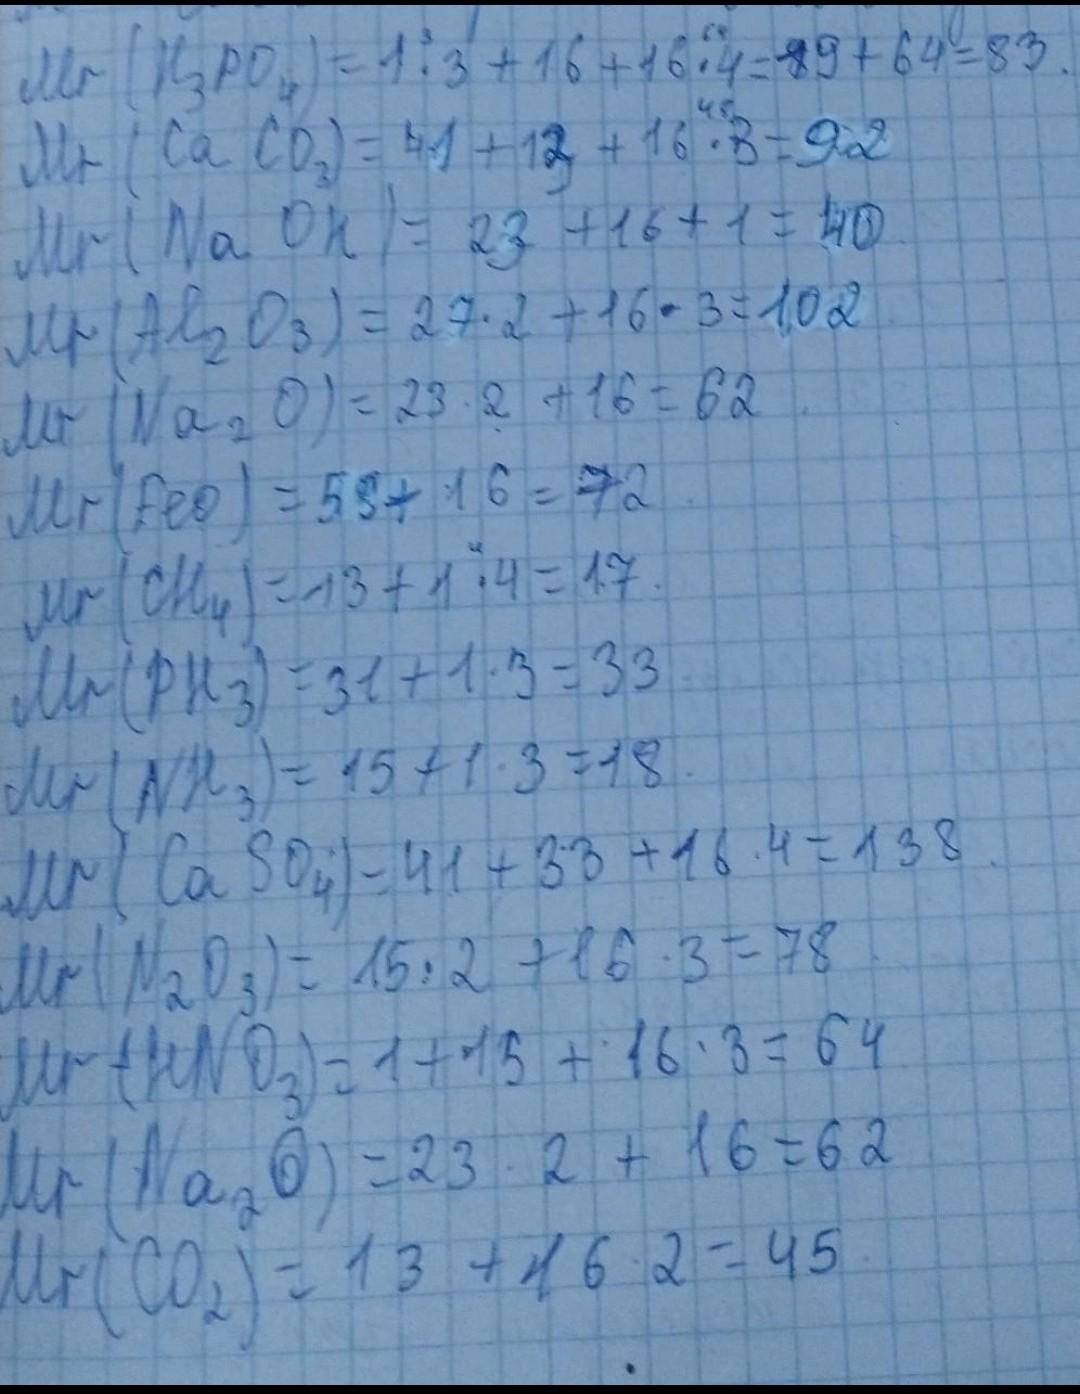 Mr(H₃PO₄) = 1·3 + 16 + 16·4 = 19 + 64 = 83.
Mr(CaCO₃) = 41 + 12 + 16·3 = 92
Mr(NaOH) = 23 + 16 + 1 = 40
Mr(Al₂O₃) = 27·2 + 16·3 = 102
Mr(Na₂O) = 23·2 + 16 = 62.
Mr(FeO) = 58 + 16 = 72.
Mr(CH₄) = 13 + 1·4 = 17.
Mr(PH₃) = 31 + 1·3 = 33.
Mr(NH₃) = 15 + 1·3 = 18.
Mr(CaSO₄) = 41 + 33 + 16·4 = 138.
Mr(N₂O₃) = 15·2 + 16·3 = 78.
Mr(HNO₃) = 1 + 15 + 16·3 = 64
Mr(Na₂O) = 23·2 + 16 = 62
Mr(CO₂) = 13 + 16·2 = 45.